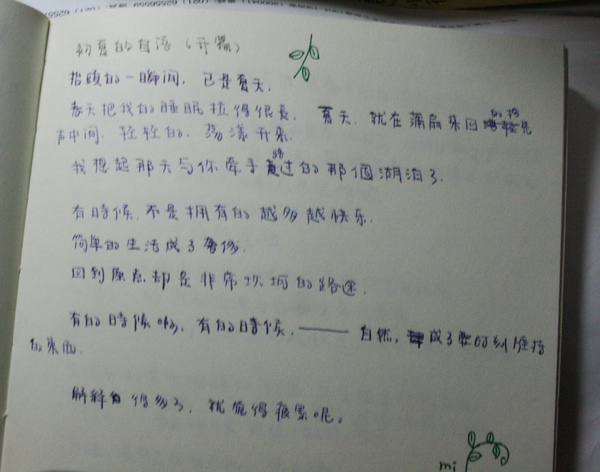 初夏的自语（开篇）
抬头的一瞬间，已是夏天.
春天把我的睡眠拉得很长， 夏天，就在蒲扇来回的摇晃
声中间，轻轻的，荡漾开来
我想起那天与你牵手路过的那個湖泊了.
有時候，不是拥有的越多越快乐.
简单的生活成了奢侈.
回到原点却是非常坎坷的路途.
有的時候啊，有的時候，—— 自然，成了要时刻
的东西.
解释得多了，就觉得疲累呢。
mi